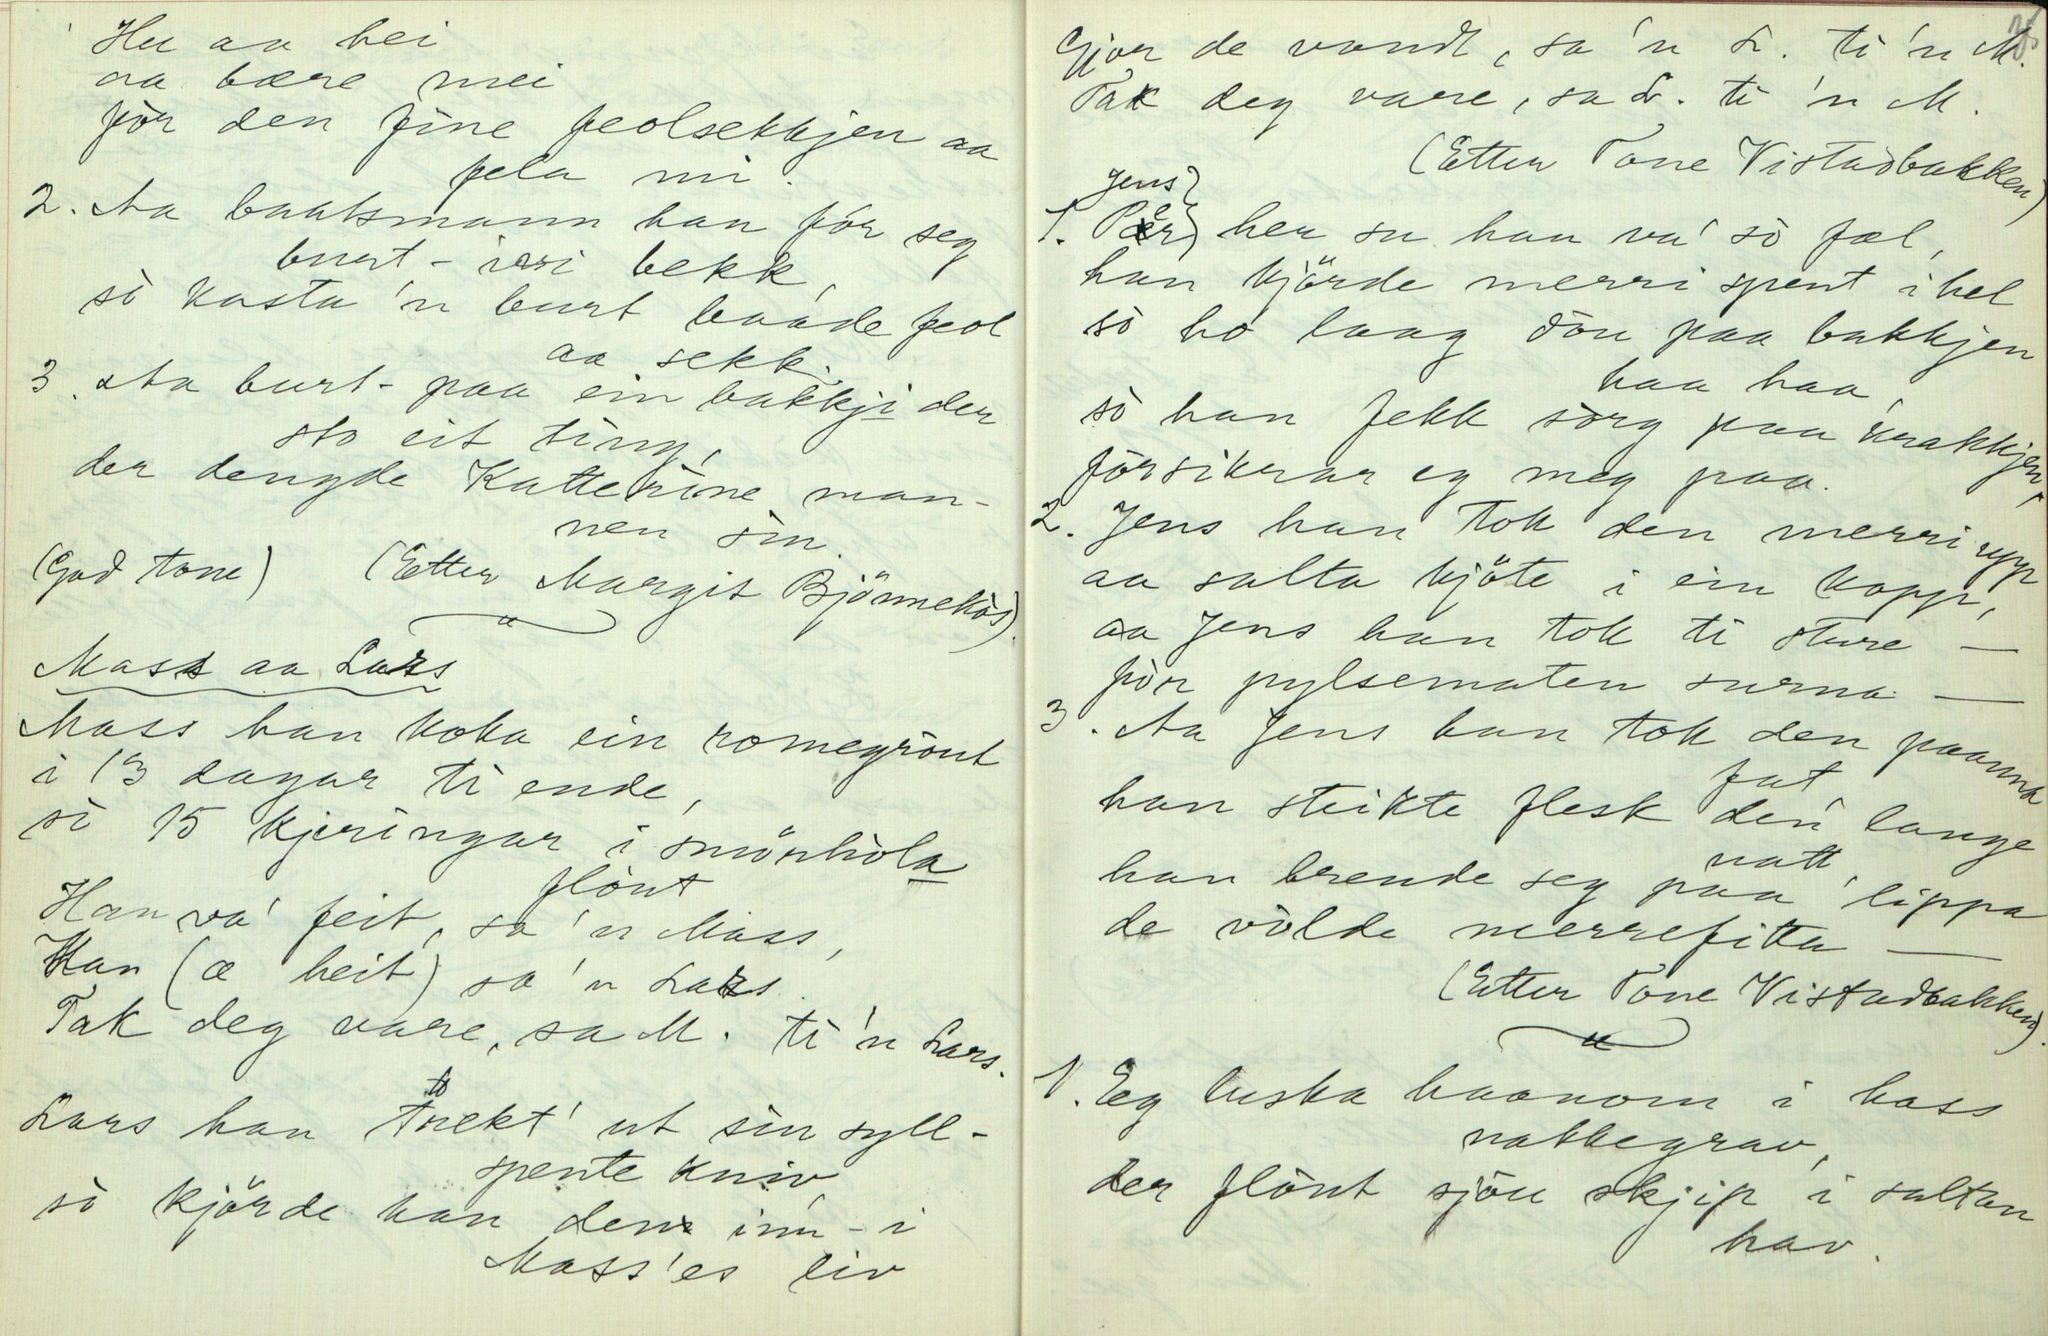 Hu aa hei
aa bære mei
før den fine feolsekkjen aa
fela mi.
2. Aa baatsmann han før seg
burt-ivi bekk,
sò kasta 'n burt baade feol
aa sekk.
3. Aa burt-paa ein bakkji der
sto eit ting,
der dengde Katterine man-
nen sin.
(God tone) (Etter Margit Bjönnekôs).
Mass aa Lars
Mass han koka ein romegròut
i 13 dagar ti ende,
sò 15 kjeringar i smörhòla
flòut
Han va' feit, sa 'n Mass,
Han (æ heit) sa 'n Lars.
Tak deg vare, sa M. ti 'n Lars.
Lars han trekt' ut sin syll-
spente kniv
sò kjörde han den inn-i
Mass'es liv
Gjor de vondt, sa 'n L. ti 'n M.
Tak deg vare, sa L. ti 'n M.
(Etter Tone Vistadbakken)
Jens
1. Per her su han va' sò fæl,
han kjörde merri spent ihel
sò ho laag dòu paa bakkjen
haa haa,
sò han fekk sòrg paa krakkjen,
fòrsikrar eg meg paa.
2. Jens han tok den merri upp
aa salta kjöte i ein kopp,
aa Jens han tok ti sture —
fòr pylsematen surna. —
3. Aa Jens han tok den paanna
fat,
han steikte flesk den lange
natt,
han brende seg paa lippa
de vòlde merrefitta —
(Etter Tone Vistadbakken).
1. Eg luska haanom i hass
nakkegrav,
der flòut sjòu skjip i saltan
hav.